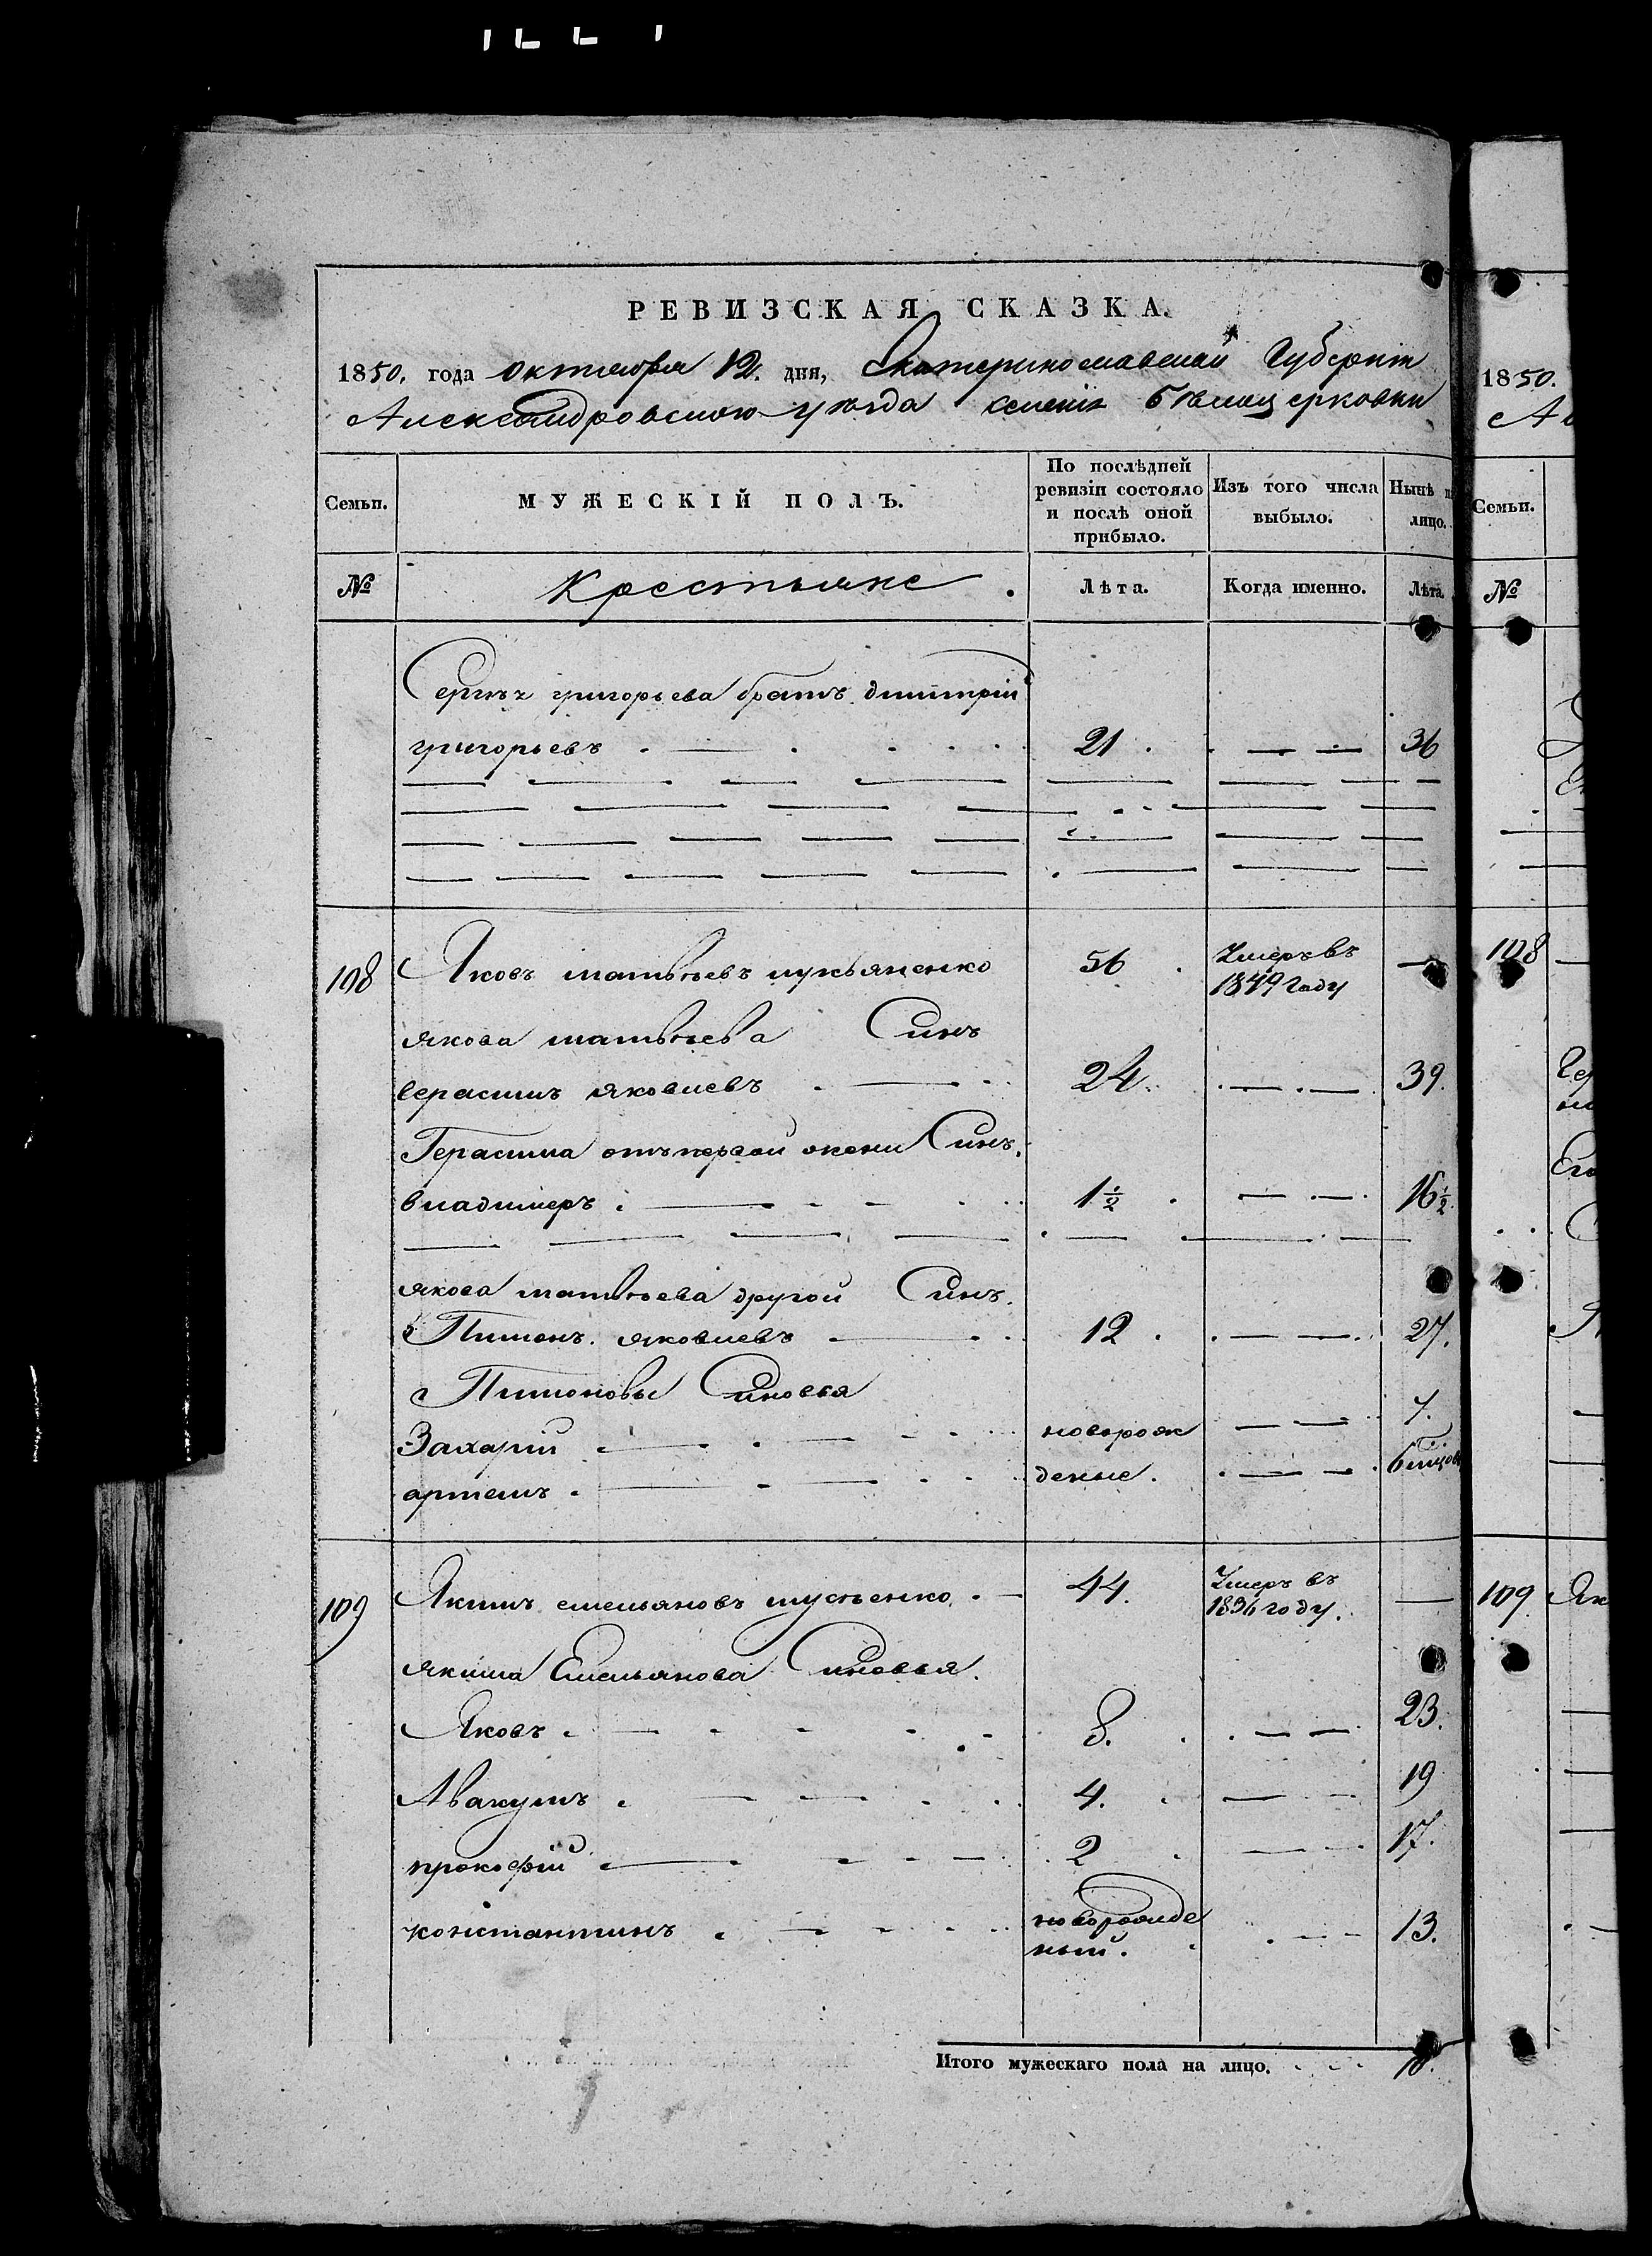 РЕВИЗСКАЯ СКАЗКА.
1850. года октября 12. дня, Екатеринославской Губерніи
Александровского уѣзда селенія Бѣлоцерковки
Семьи.
МУЖЕСКІЙ ПОЛЪ.
По послѣдней ревизіи состояло и послѣ оной прибыло.
Изъ того числа выбыло.
Нынѣ на лицо.
№ Крестьяне. Лѣта. Когда именно. Лѣта.
Сергѣя григорьева братъ димитрій
григорьевъ 21. 36
108 Яковъ матвѣевъ лукьяненко 56 Умеръ въ
1849 году
якова матвѣева Синъ
герасимъ яковлевъ 24. 39.
Герасима отъ первой жени Синъ.
владимеръ 1½ 16½
якова матвѣева другой Синъ.
Пименъ яковлевъ 12. 27.
Пимоновы Синовья
Захарій новорож 7.
артемъ деные. 6 мцовъ
109 Якимъ емельяновъ 44. Умеръ въ
1836 году.
якима Емельянова Синовья.
Яковъ 8. 23.
Авакумъ 4. 19
прокофій 2 17.
константинъ новорожде 13.
ный.
Итого мужескаго пола на лицо. 10.
1850.
Семьи.
№
108
109 Як